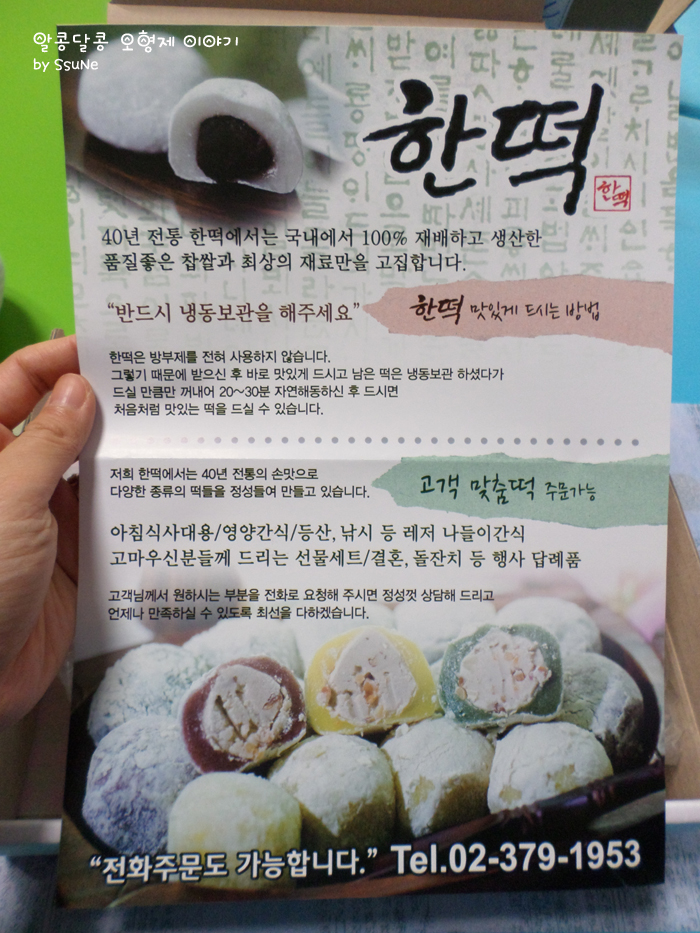 알콩달콩 오형제 이야기
by SsuNe
한떡
한떡
40년 전통 한떡에서는 국내에서 100% 재배하고 생산한
품질좋은 찹쌀과 최상의 재료만을 고집합니다.
“반드시 냉동보관을 해주세요”
한떡 맛있게 드시는 방법
한떡은 방부제를 전혀 사용하지 않습니다.
그렇기 때문에 받으신 후 바로 맛있게 드시고 남은 떡은 냉동보관 하셨다가
드실 만큼만 꺼내어 20~30분 자연해동하신 후 드시면
처음처럼 맛있는 떡을 드실 수 있습니다.
저희 한떡에서는 40년 전통의 손맛으로
다양한 종류의 떡들을 정성들여 만들고 있습니다.
고객 맞춤떡 주문가능
아침식사대용/영양간식/등산, 낚시 등 레저 나들이간식
고마우신분들께 드리는 선물세트/결혼, 돌잔치 등 행사 답례품
고객님께서 원하시는 부분을 전화로 요청해 주시면 정성껏 상담해 드리고
언제나 만족하실 수 있도록 최선을 다하겠습니다.
“전화주문도 가능합니다.” Tel.02-379-1953